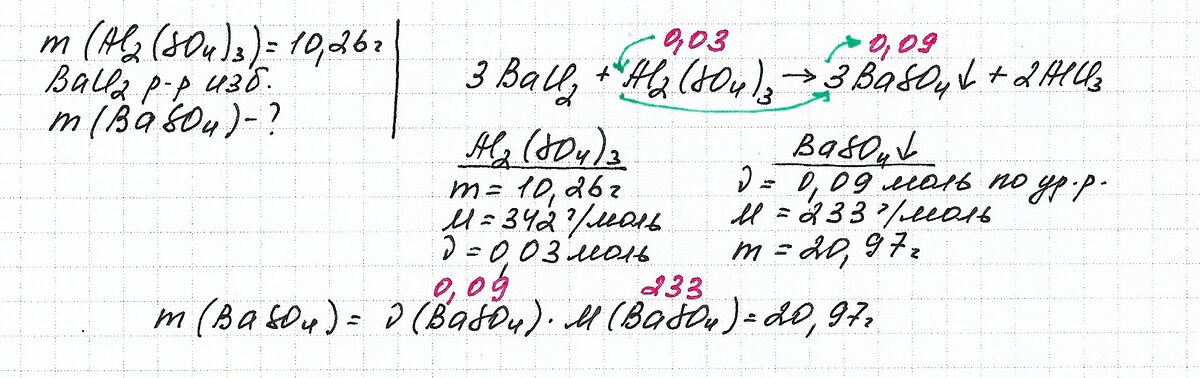 m (Al₂(SO₄)₃) = 10,26 г
BaCl₂ р-р изб.
m (BaSO₄) - ?
0,03 0,09
3 BaCl₂ + Al₂(SO₄)₃ → 3 BaSO₄↓ + 2AlCl₃
Al₂(SO₄)₃
m = 10,26 г
M = 342 г/моль
ν = 0,03 моль
BaSO₄↓
ν = 0,09 моль по ур.р.
M = 233 г/моль
m = 20,97 г
0,09 233
m (BaSO₄) = ν (BaSO₄) · M (BaSO₄) = 20,97 г